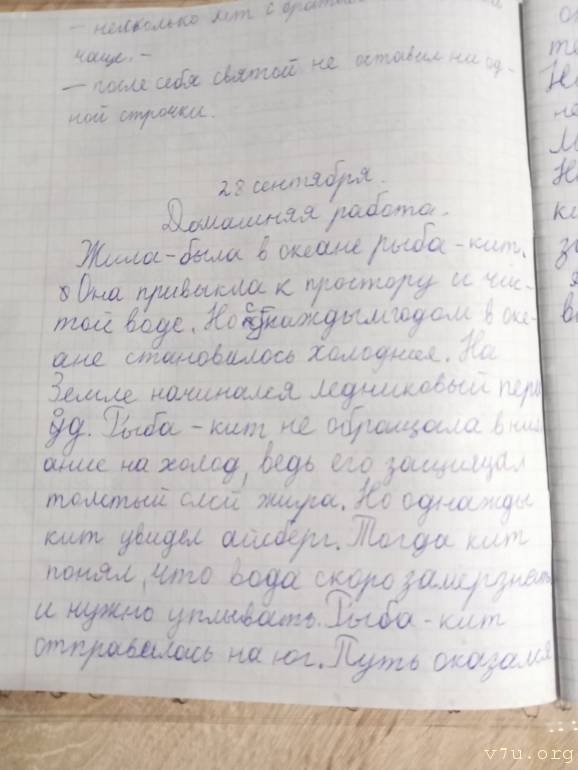 — несколько лет с
чаще. —
— после себя святой не оставил ни од-
ной строчки.
28 сентября.
Домашняя работа.
Жила-была в океане рыба-кит.
Она привыкла к простору и чис-
той воде. Но с каждым годом в оке-
ане становилось холоднее. На
Земле начинался ледниковый пери
од. Рыба-кит не обращала вним
ание на холод, ведь его защищал
толстый слой жира. Но однажды
кит увидел айсберг. Тогда кит
понял, что вода скоро замерзнет
и нужно уплывать. Рыба-кит
отправилась на юг. Путь оказался
v7u.org